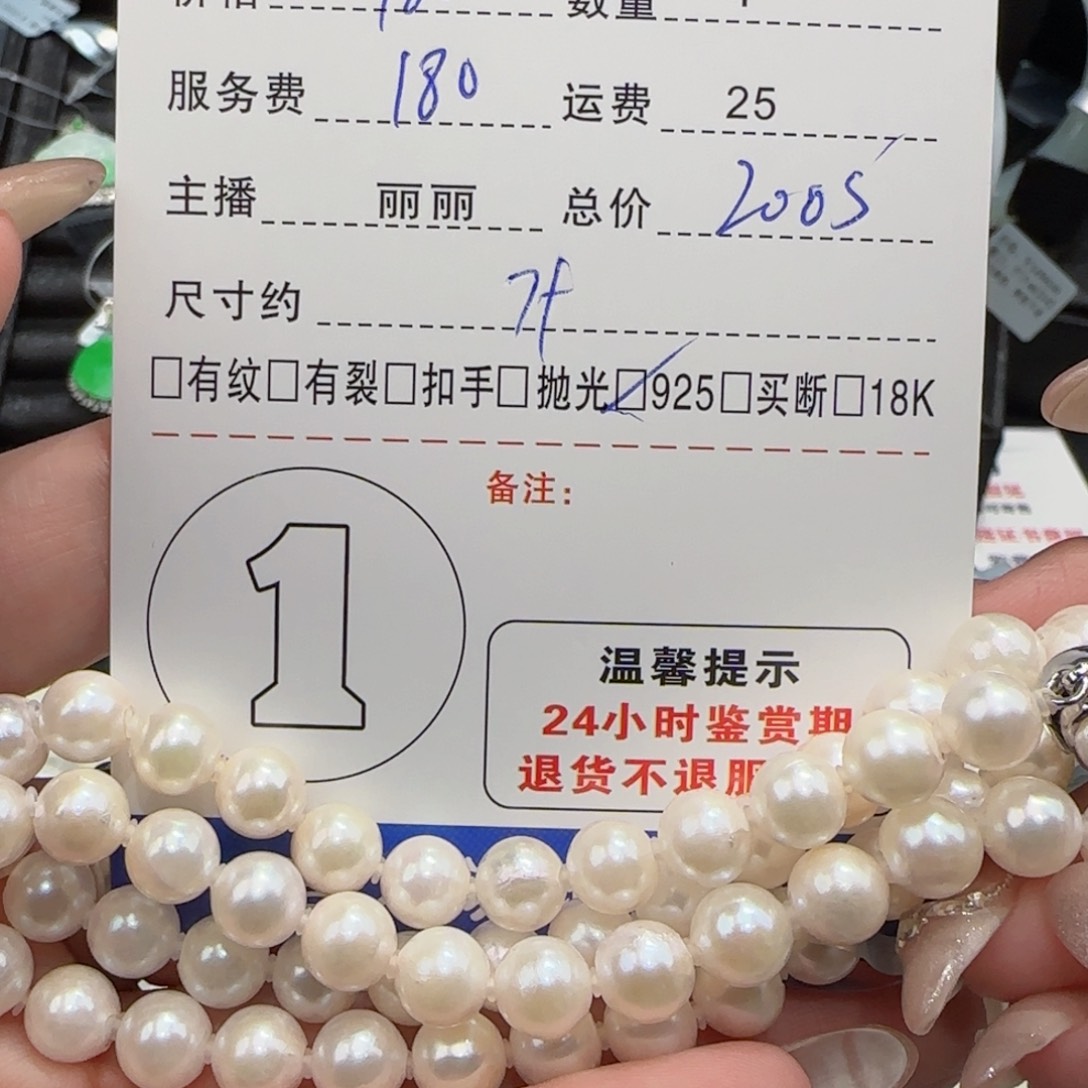 价格 数量
服务费 180 运费 25
主播 丽丽 总价 2005
尺寸约 7+
□有纹□有裂□扣手□抛光□925□买断□18K
备注：
1
温馨提示
24小时鉴赏期
退货不退服